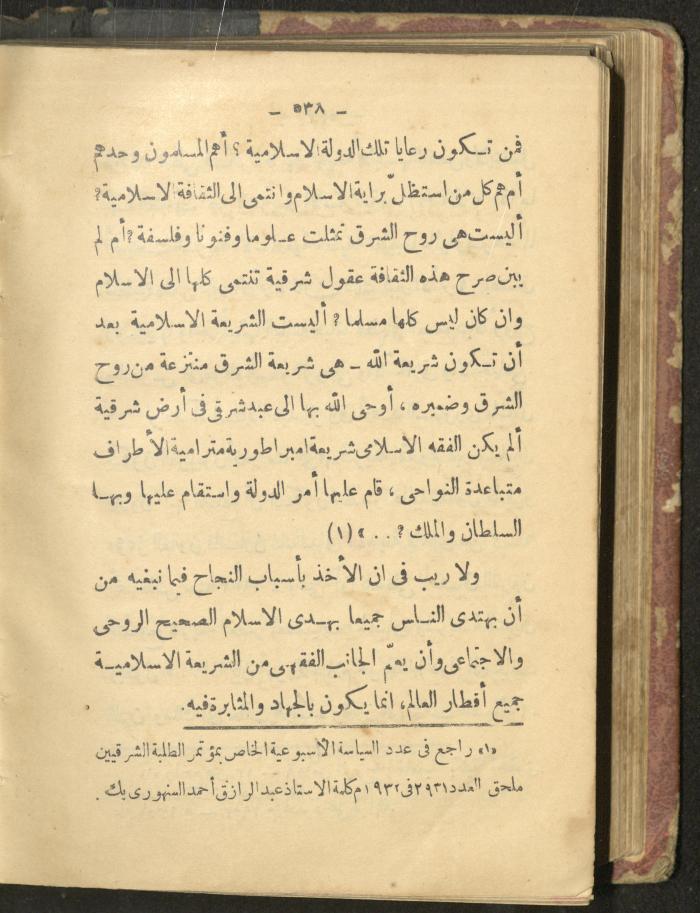 — ٥٣٨ —
فمن تكون رعايا تلك الدولة الاسلامية ؟ أهم المسلمون وحدهم
أم هم كل من استظلّ براية الاسلام وانتمى الى الثقافة الاسلامية ؟
أليست هى روح الشرق تمثلت علوما وفنونا وفلسفة ؟ أم لم
يبن صرح هذه الثقافة عقول شرقية تنتمى كلها الى الاسلام
وان كان ليس كلها مسلما ؟ أليست الشريعة الاسلامية بعد
أن تكون شريعة الله ــ هى شريعة الشرق منتزعة من روح
الشرق وضميره ، أوحى الله بها الى عبد شرقى فى أرض شرقية
ألم يكن الفقه الاسلامى شريعة امبراطورية مترامية الأطراف
متباعدة النواحى ، قام عليها أمر الدولة واستقام عليها وبها
السلطان والملك ؟ . . » (١)
ولا ريب فى ان الأخذ بأسباب النجاح فيما نبغيه من
أن يهتدى الناس جميعا بهدى الاسلام الصحيح الروحى
والاجتماعى وأن يعمّ الجانب الفقهى من الشريعة الاسلامية
جميع أقطار العالم، انما يكون بالجهاد والمثابرة فيه .
«١» راجع فى عدد السياسة الأسبوعية الخاص بمؤتمر الطلبة الشرقيين
ملحق العدد ٢٩٣١ فى ١٩٣٢ م كلمة الاستاذ عبد الرازق أحمد السنهورى بك .